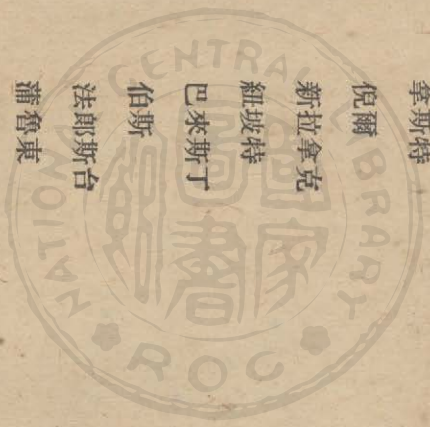 拿斯特
倪爾
新拉拿克
紐坡特
巴來斯丁
伯斯
法郎斯台
蒲魯東
NATIONAL CENTRAL LIBRARY
ROC
國家圖書館